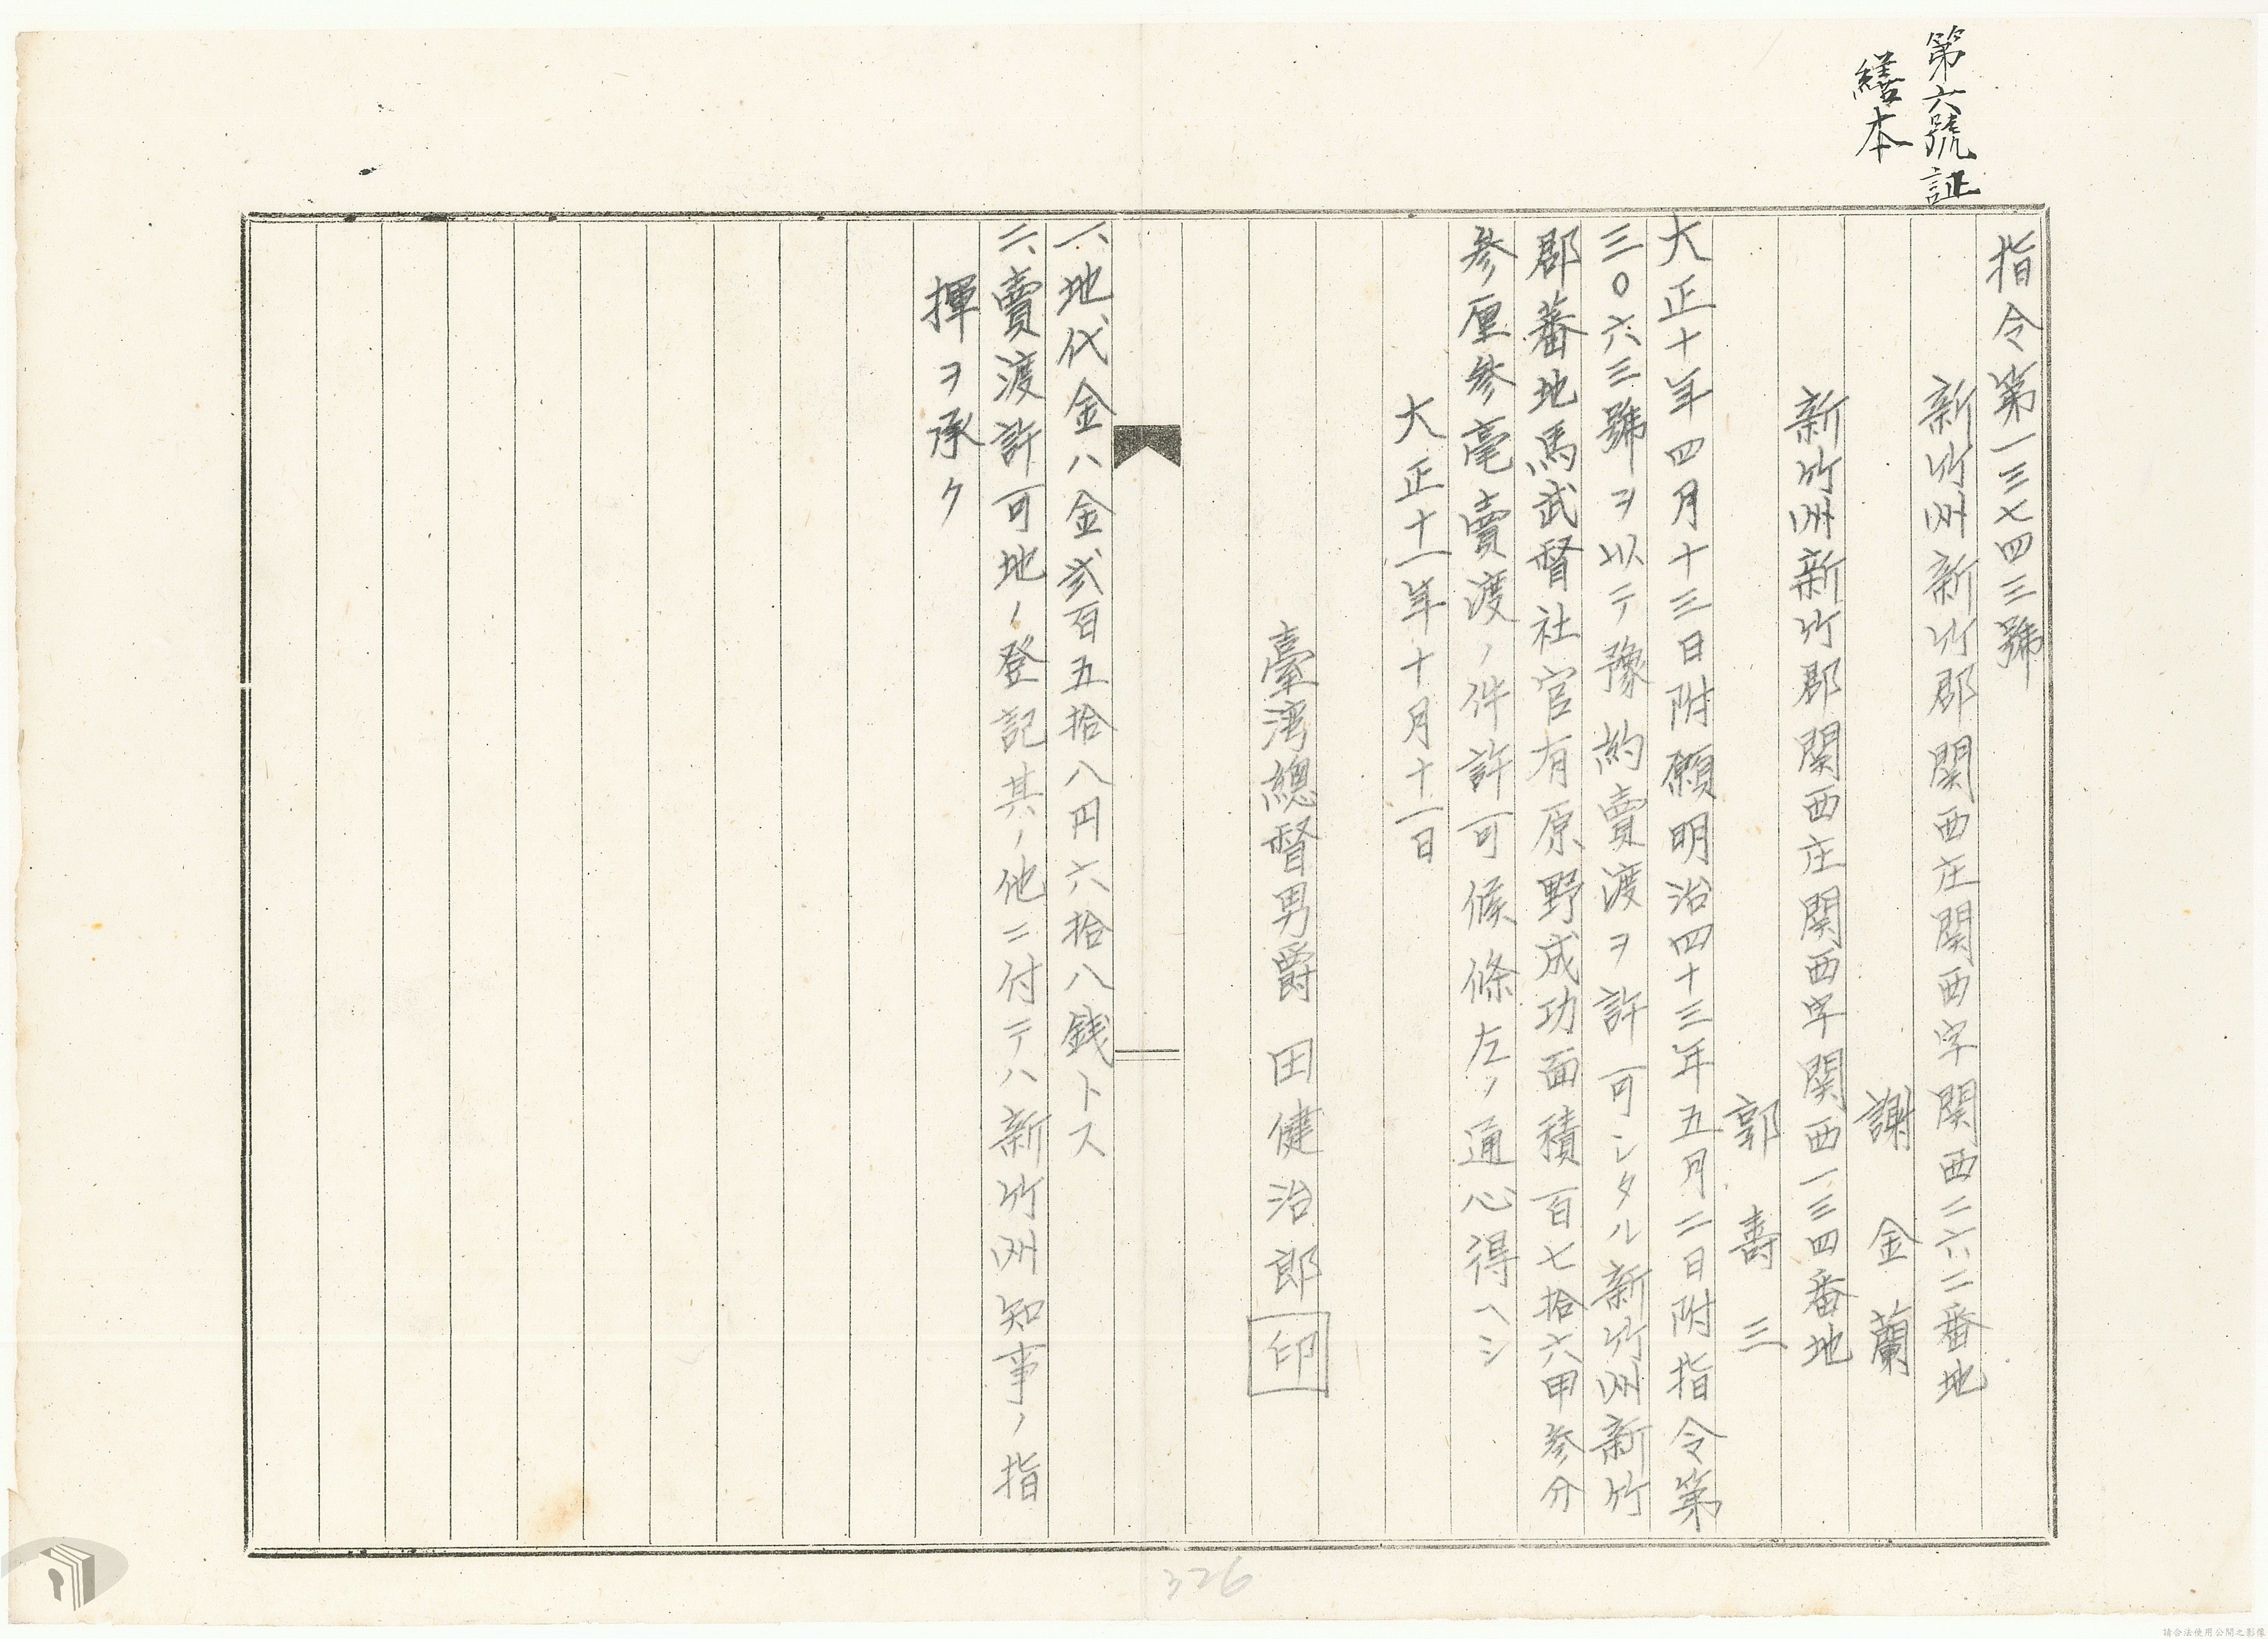 第六號証
繕本
指令第一三七四三號
新竹州新竹郡関西庄関西字関西二六二番地
謝金蘭
新竹州新竹郡関西庄関西字関西一三四番地
郭壽三
大正十年四月十三日附願明治四十三年五月二日附指令第
三〇六三號ヲ以テ豫約賣渡ヲ許可シタル新竹州新竹
郡蕃地馬武督社官有原野成功面積百七拾六甲参分
参厘参毫賣渡ノ件許可候條左ノ通心得ヘシ
大正十一年十月十一日
臺湾總督男爵 田健治郎 印
一、地代金ハ金貳百五拾八円六拾八銭トス
二、賣渡許可地ノ登記其ノ他ニ付テハ新竹州知事ノ指
揮ヲ承ク
326
請合法使用公開之影像